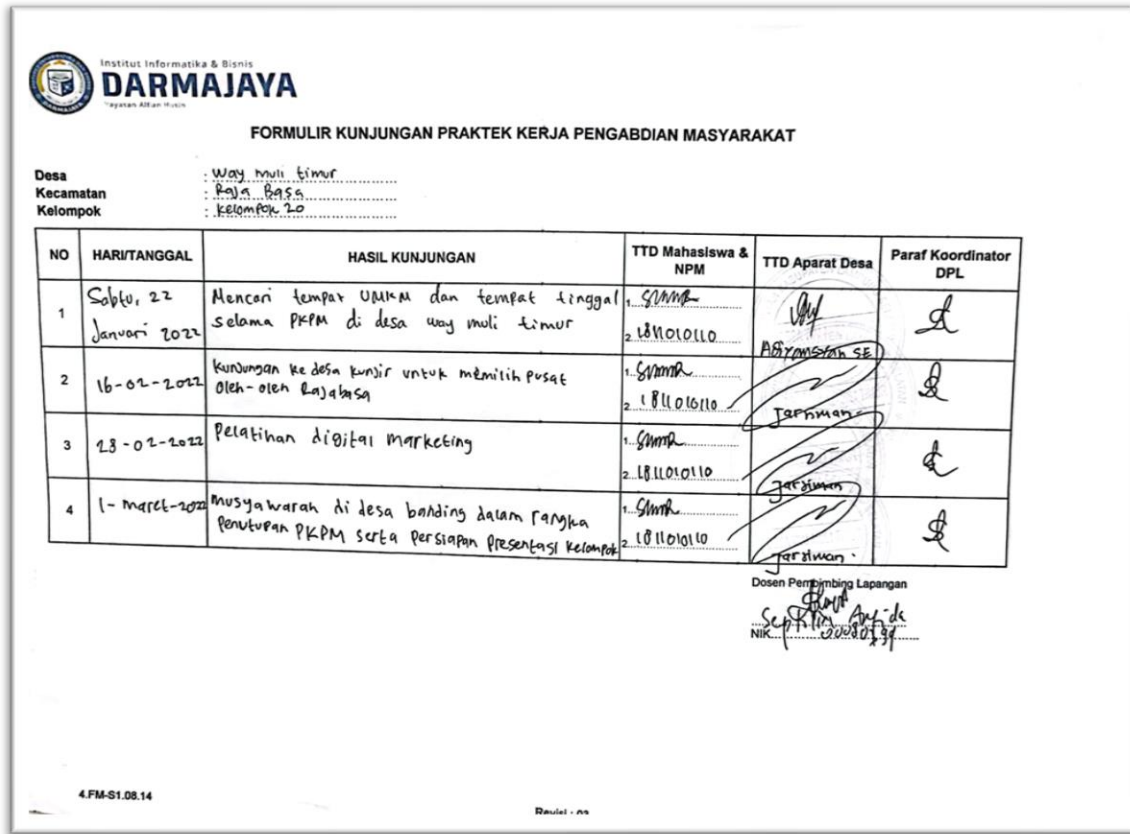 Institut Informatika & Bisnis
DARMAJAYA
Yayasan Alfian Husin
FORMULIR KUNJUNGAN PRAKTEK KERJA PENGABDIAN MASYARAKAT
Desa : Way muli timur
Kecamatan : Raja Basa
Kelompok : Kelompok 20
NO HARI/TANGGAL HASIL KUNJUNGAN TTD Mahasiswa & NPM TTD Aparat Desa Paraf Koordinator DPL
1 Sabtu, 22 Januari 2022
Mencari tempat UMKM dan tempat tinggal
selama PKPM di desa way muli timur
1.
2. 1811010110
2 16-02-2022
Kunjungan ke desa kunjir untuk memilih pusat
oleh-oleh Rajabasa
1.
2. 1811010110
3 28-02-2022
Pelatihan digital marketing
1.
2. 1811010110
Jarsiman
4 1-maret-2022
musyawarah di desa banding dalam rangka
penutupan PKPM serta persiapan presentasi kelompok
1.
2. 1811010110
Jarsiman
Dosen Pembimbing Lapangan
NIK.
4.FM-S1.08.14
Revisi : 03